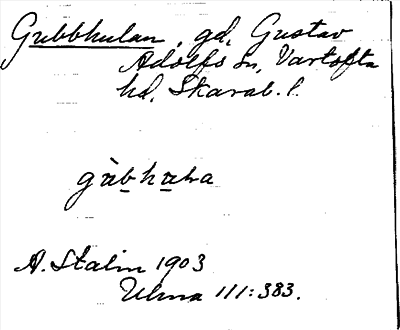 Gubbhulan, gd, Gustav
Adolfs sn, Vartofta
hd, Skarab. l.
A. Stalin 1903
Ulma 111:383.